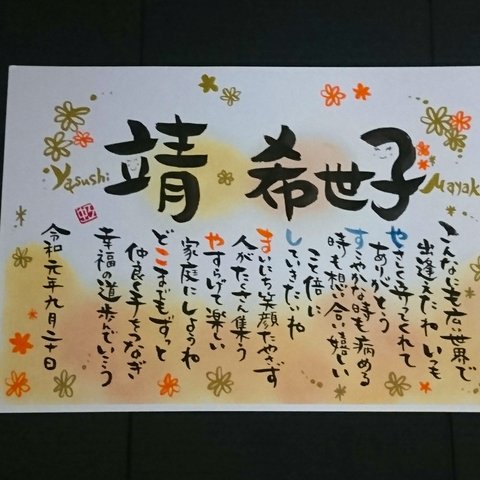 Yasushi
靖 希世子
Mayak
こんなにも広い世界で
出逢えたね いつも
やさしく守ってくれて
ありがとう
すこやかな時も病める
時も想い合い嬉しい
こと倍に
していきたいね
まいにち笑顔たやさず
人がたくさん集う
やすらげて楽しい
家庭にしようね
どこまでもずっと
仲良く手をつなぎ
幸福の道歩んでいこう
令和元年九月二十日